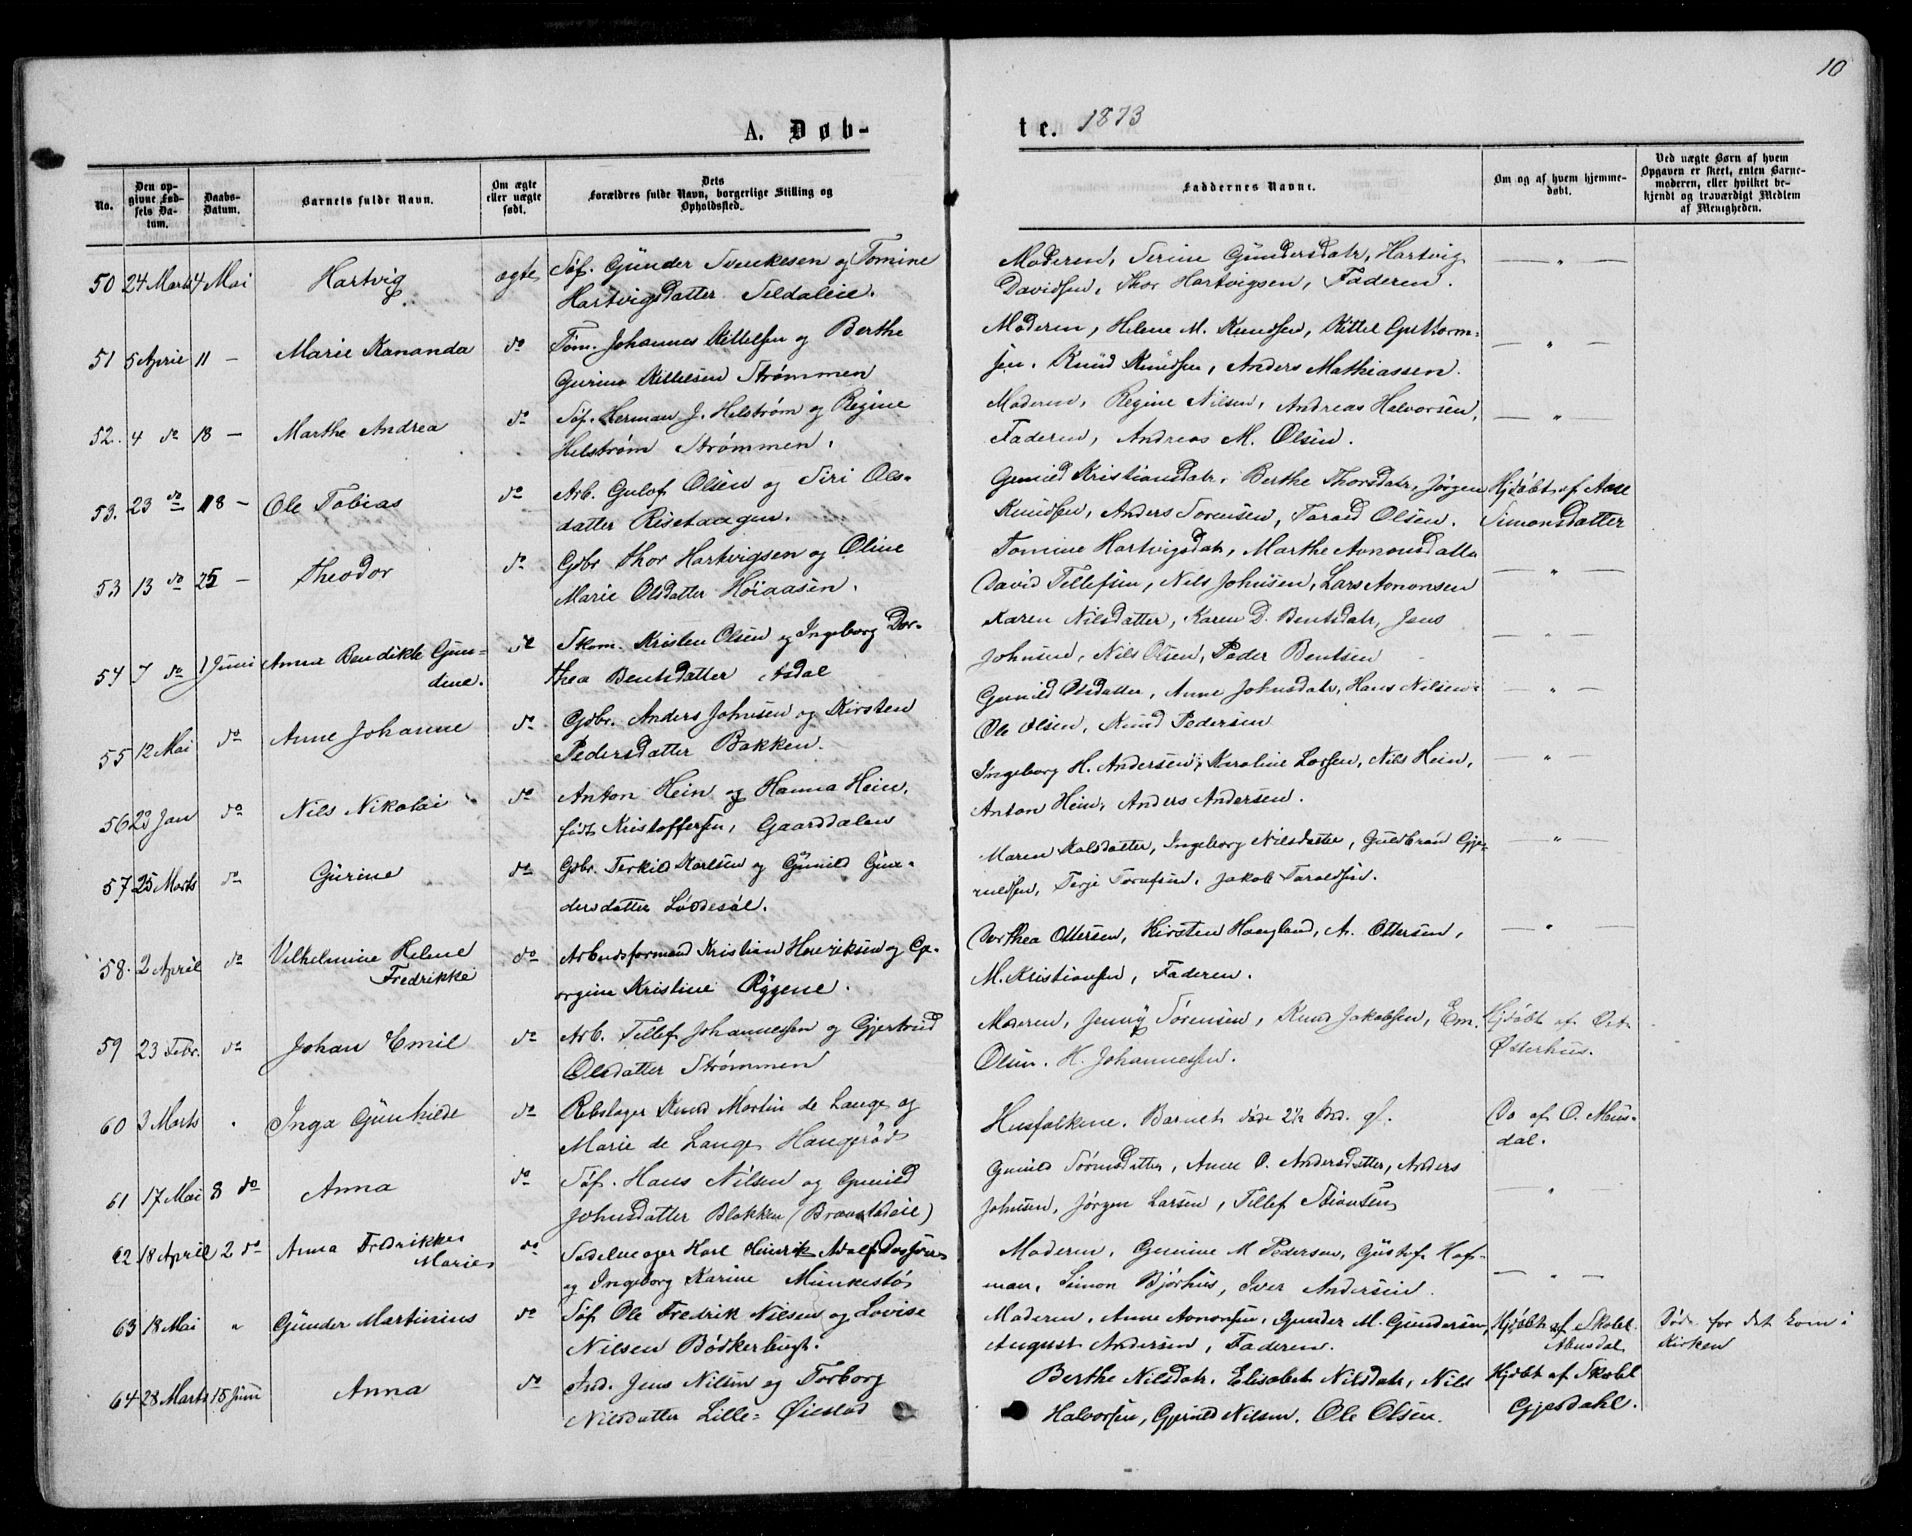 10
A. Døb-
te. 1873
No.
Den op-
givne Fød-
sels Da-
tum.
Daabs-
Datum.
Barnets fulde Navn.
Om ægte
eller uægte
født.
Dets
Forældres fulde Navn, borgerlige Stilling og
Opholdssted.
Faddernes Navne.
Om og af hvem hjemme-
døbt.
Ved uægte Børn af hvem
Opgaven er skeet, enten Barne-
moderen, eller hvilket be-
kjendt og troværdigt Medlem
af Menigheden.
50 24 Marts 4 Mai Hartvig ægte Søf. Gunder Svenkesen og Tomine
Hartvigsdatter Seldaleie.
Moderen, Serine Gundersdatr, Hartvig — " —
Davidsen, Thor Hartvigsen, Faderen.
51 5 April 11 — Marie Kananda do Tøm. Johannes Kittelsen og Berthe
Gurine Kittelsen Strømmen
Moderen, Helene M. Knudsen, Kittel Guttorm- — " —
sen, Knud Knudsen, Anders Mathiassen.
52. 4 do 18 — Marthe Andrea do Søf. Herman J. Helstrøm og Regine
Helstrøm Strømmen.
Moderen, Regine Nilsen, Andreas Halvorsen, — " —
Faderen, Andreas M. Olsen.
53. 23 do 18 — Ole Tobias do Arb. Gulof Olsen og Siri Ols-
datter Risehaugen.
Gunild Kristiansdatr, Berthe Thorsdatr, Jørgen Hjdøbt af Aase
Knudsen, Anders Sørensen, Tarald Olsen. Simonsdatter
53 13 do 25 — Theodor do Gdbr. Thor Hartvigsen og Oline
Marie Olsdatter Høiaasen.
Tomine Hartvigsdatr, Marthe Aanonsdatter
David Tellefsen, Nils Johnsen, Lars Aanonsen — " —
54 7 do 1 Juni Anna Bendikte Gun-
dine. do Skom. Kristen Olsen og Ingeborg Dor-
thea Bentsdatter Asdal
Karen Nilsdatter, Karen D. Bentsdatr, Jens — " —
Johnsen, Nils Olsen, Peder Bentsen
55 12 Mai do Anne Johanne do Gdbr. Anders Johnsen og Kirsten
Pedersdatter Bakken.
Gunild Olsdatter, Anne Johnsdatr, Hans Nilsen, — " —
Ole Olsen, Knud Pedersen
56 23 Jan do Nils Nikolai do Anton Hein og Hanna Hein,
født Kristoffersen, Gaarddalen
Ingeborg H. Andersen, Karoline Larsen, Nils Hein, — " —
Anton Hein, Anders Andersen.
57 25 Marts do Gurine do Gdbr. Terkild Karlsen og Gunild Gun-
dersdatter Løddesøl.
Maren Kalsdatter, Ingeborg Nilsdatter, Guldbrand Gje- — " —
ruldsen, Terje Torufsen, Jakob Taraldsen.
58. 2 April do Vilhelmine Helene
Fredrikke do Arbeidsformand Kristian Henriksen og Ge-
orgine Kristine Rygene.
Dorthea Ottersen, Kirsten Haugland, A. Ottersen, — " —
M. Kristiansen, Faderen.
59 23 Febr. do Johan Emil do Arb. Tellef Johannessen og Gjertrud
Olsdatter Strømmen
Moderen, Jenny Sørensen, Knud Jakobsen, Em. Hjdøbt af
Olsen. H. Johannessen. Østerhus.
60 3 Marts " Inga Gunhilde do Rebslager Knud Martin de Lange og
Marie de Lange Haugerød
Husfolkene. Barnet døde 2½ Md. gl. Do af O. Maus-
dal.
61 17 Mai 8 do Anna do Søf. Hans Nilsen og Gunild
Johnsdatter Blakken
Gunild Sørensdatter, Anne O. Andersdatter, Anders
Johnsen, Jørgen Larsen, Tellef — " —
62 18 April 2 do Anna Fredrikke
Marie do Sadelmager Karl Hinrik Adolf
og Ingeborg Karine Munkestø
Moderen, Gunine M. Pedersen, Gustof Hof-
man, Simon Bjørhus, Iver Andersen. — " —
63 18 Mai " Gunder Martinius do Søf Ole Fredrik Nilsen og Lovise
Nilsen Bødkerbugt.
Moderen, Anne Aanonsen, Gunder M. Gundersen, Hjdøbt af Skoll. Døde før det kom i
August Andersen, Faderen. Abusdal Kirken
64 28 Marts 15 Juni Anna do Ind. Jens Nilsen og Torborg
Nilsdatter Lille-Øiestad
Berthe Nilsdatr. Elisabet Nilsdatr, Nils Hjdøbt af Skoll
Halvorsen, Gjeruld Nilsen. Ole Olsen. Gjesdahl.